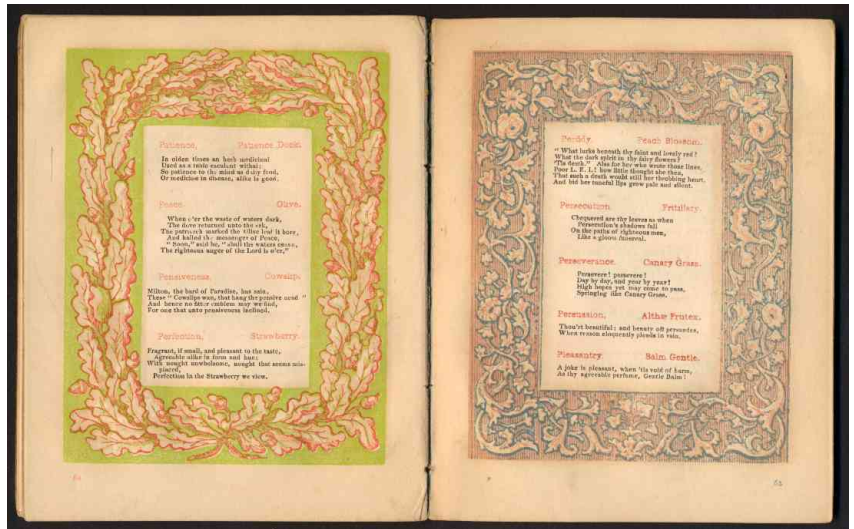 Patience, Patience Dock.
In olden times an herb medicinal
Used as a table esculent withal:
So patience to the mind as daily food,
Or medicine in disease, alike is good.
Peace. Olive.
When o'er the waste of waters dark,
The dove returned unto the ark,
The patriarch marked the Olive leaf it bore,
And hailed the messenger of Peace,
"Soon," said he, "shall the waters cease,
The righteous anger of the Lord is o'er."
Pensiveness. Cowslip.
Milton, the bard of Paradise, has sain,
These "Cowslips wan, that hang the pensive head"
And hence no fitter emblem may we find,
For one that unto pensiveness inclined.
Perfection. Strawberry.
Fragrant, if small, and pleasant to the taste,
Agreeable alike in form and hue:
With nought unwholesome, nought that seems mis-
placed,
Perfection in the Strawberry we view.
Perfidy. Peach Blossom.
"What lurks beneath thy faint and lovely red?
What the dark spirit in thy fairy flowers?
'Tis death." Alas for her who wrote those lines,
Poor L. E. L! how little thought she then,
That such a death would still her throbbing heart,
And bid her tuneful lips grow pale and silent.
Persecution. Fritillary.
Chequered are thy leaves as when
Persecution's shadows fall
On the paths of righteous men,
Like a gloom funereal.
Perseverance. Canary Grass.
Persevere! persevere!
Day by day, and year by year!
High hopes yet may come to pass,
Springing like Canary Grass.
Persuasion, Althæ Frutex.
Thou'rt beautiful: and beauty oft persuades,
When reason eloquently pleads in vain.
Pleasantry Balm Gentle.
A joke is pleasant, when 'tis void of harm,
As thy agreeable perfume, Gentle Balm!